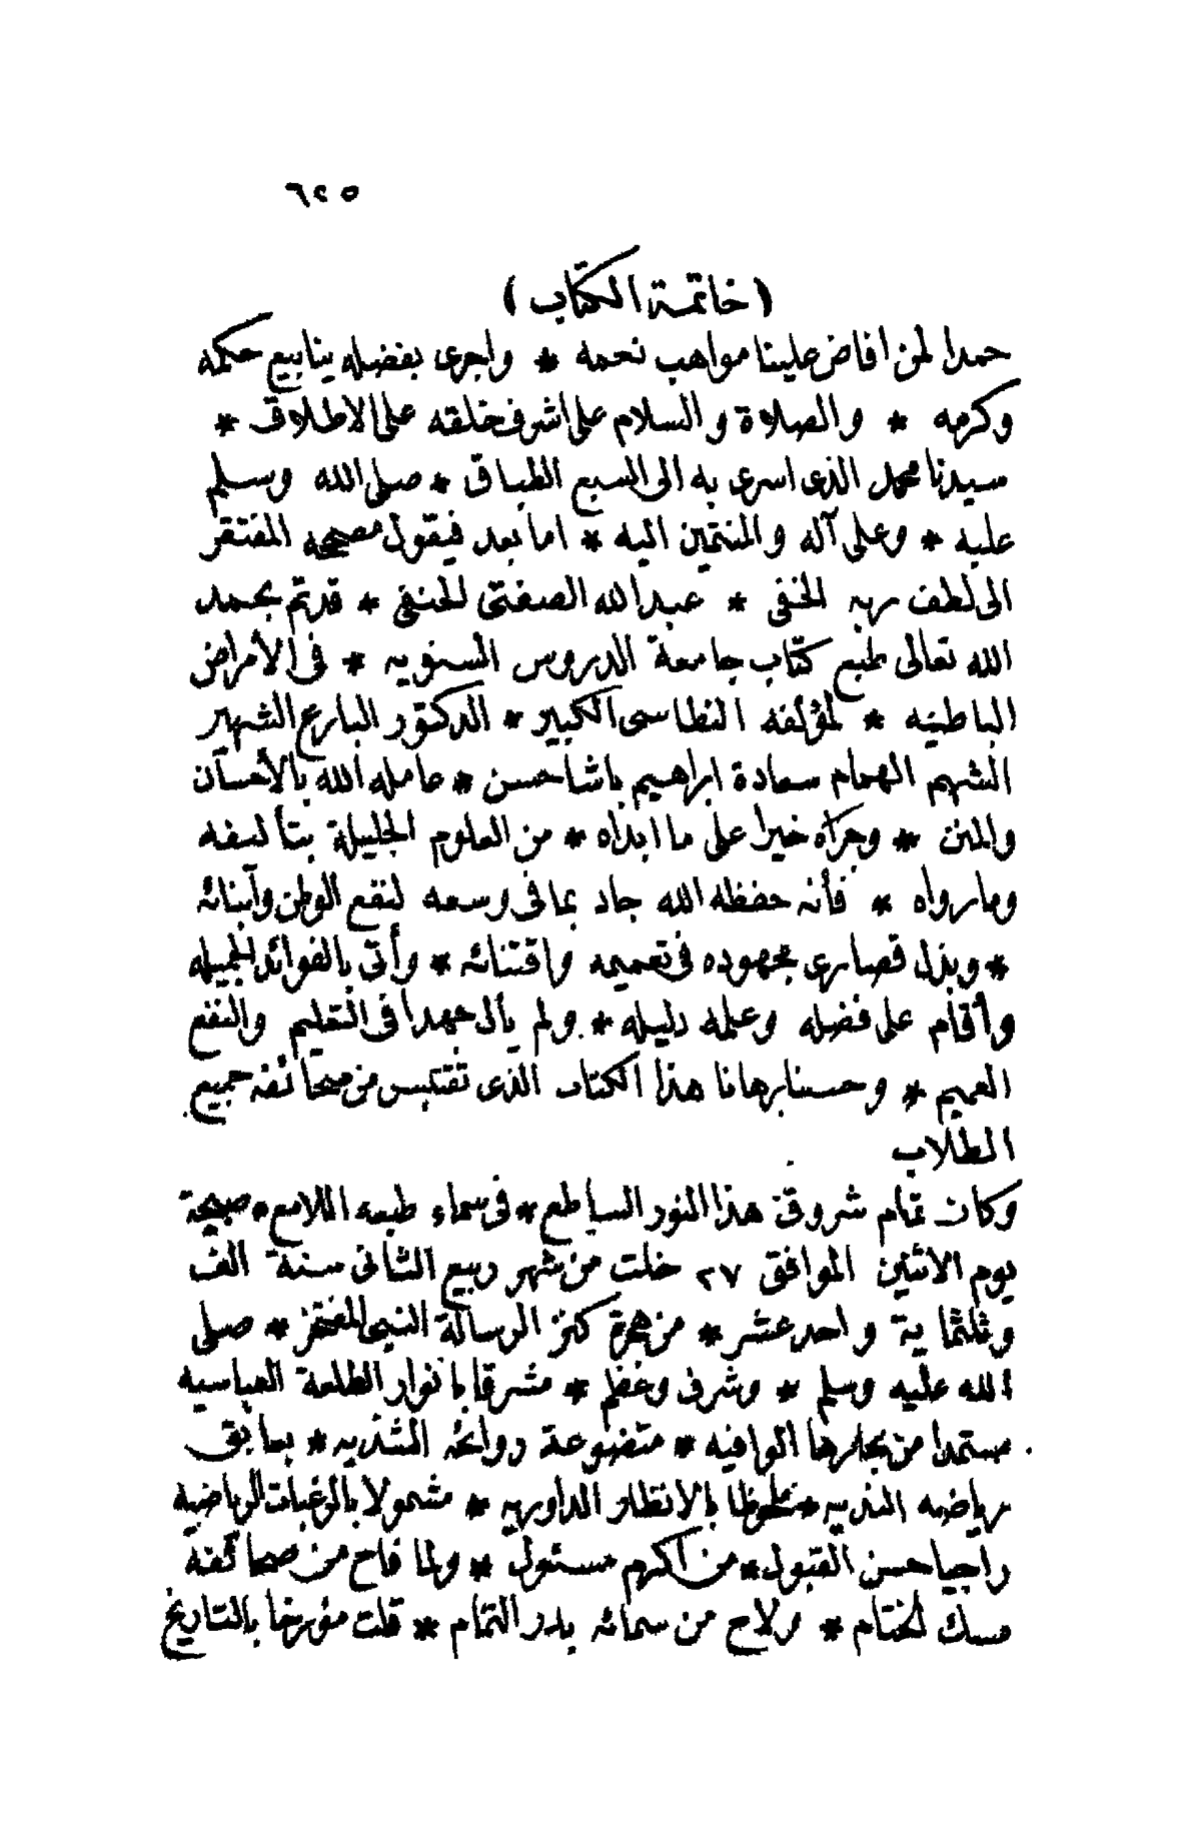 ٦٢٥
( خاتمة الكتاب )
حمدا لمن افاض علينا مواهب نعمه * واجرى بفضله ينابيع حكمه
وكرمه * والصلاة والسلام على اشرف خلقه على الاطلاق *
سيدنا محمد الذى اسرى به الى السبع الطباق * صلى الله وسلم
عليه * وعلى آله والمنتمين اليه * اما بعد فيقول مصححه المفتقر
الى لطف ربه الخفى * عبد الله الصفتى الحنفى * قد تم بحمد
الله تعالى طبع كتاب جامعة الدروس السنويه * فى الأمراض
الباطنيه * لمؤلفه النطاسى الكبير * الدكتور البارع الشهير
الشهم الهمام سعادة ابراهيم باشا حسن * عامله الله بالأحسان
والمنن * وجزاه خيرا على ما ابداه * من العلوم الجليلة بتأليفه
وما رواه * فأنه حفظه الله جاد بما فى وسعه لنفع الوطن وأبنائه
* وبذل قصارى مجهوده فى تعميمه واقتنائه * وأتى بالفوائد الجميله
وأقام على فضله وعلمه دليله * ولم يأل جهدا فى التعليم والنفع
العميم * وحسبنا برهانا هذا الكتاب الذى تقتبس من صحائفه جميع
الطلاب
وكان تمام شروق هذا النور الساطع * فى سماء طبعه اللامع * صبيحة
يوم الاثنين الموافق ٢٧ خلت من شهر ربيع الثانى سنة الف
وثلثماية واحد عشر * من هجرة كنز الرسالة النبى المفتخر * صلى
الله عليه وسلم * وشرف وعظم * مشرقا بانوار الطلعة العباسيه
مستمدا من بحارها الوافيه * متضوعة روائحه الشذيه * بعابق
رياضه النديه * ملحوظا بالانظار الداوريه * مشمولا بالرغبات الرياضية
راجيا حسن القبول * من اكرم مسئول * ولما فاح من صحائفه
مسك الختام * ولاح من سمائه بدر التمام * قلت مؤرخا بالتاريخ